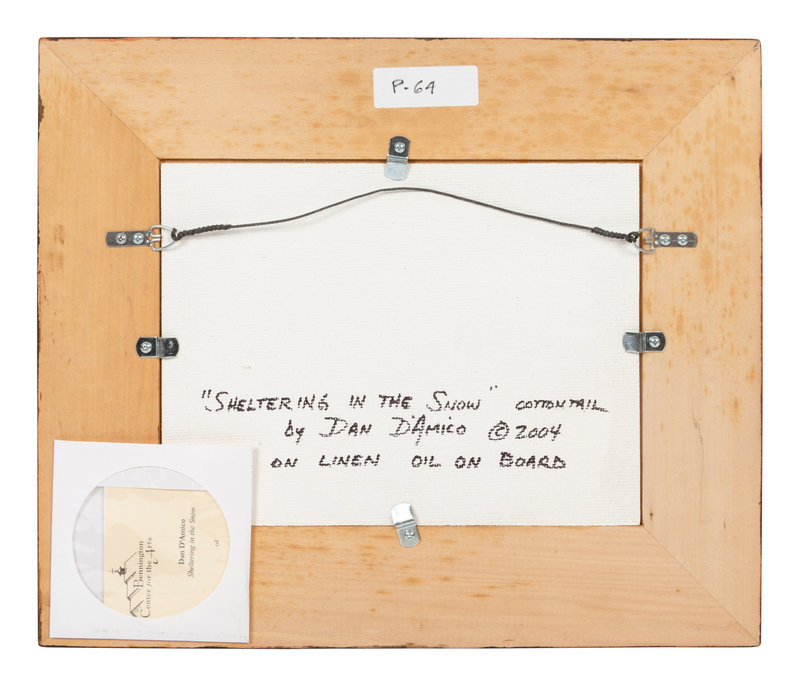 P-64
"SHELTERING IN THE SNOW" COTTONTAIL
by DAN D'AMICO © 2004
ON LINEN OIL ON BOARD
Bennington
Center for the Arts
Dan D'Amico
Sheltering in the Snow
oil